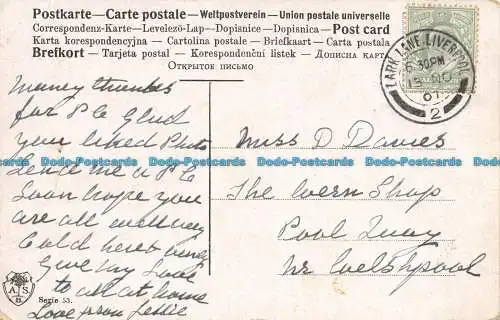 Postkarte - Carte postale - Weltpostverein - Union postale universelle
Correspondenz-Karte - Levelező-Lap - Dopisnice - Dopisnica - Post card
Karta korespondencyjna - Cartolina postale - Briefkaart - Carta postala
Brefkort - Tarjeta postal - Korespondenční listek - Дописна карт
ОТКРЫТОЕ ПИСЬМО
LARK LANE LIVERPOOL
.30PM
07
2
Many thanks
for P C Glad
you liked Photo
Send me a P C
Soon hope you
are all well very
Cold here now
Give my Love
to all at home
Love from
Miss D Davies
The Wern Shop
Pool Quay
Nr Welshpool
A S
B
Serie 53.